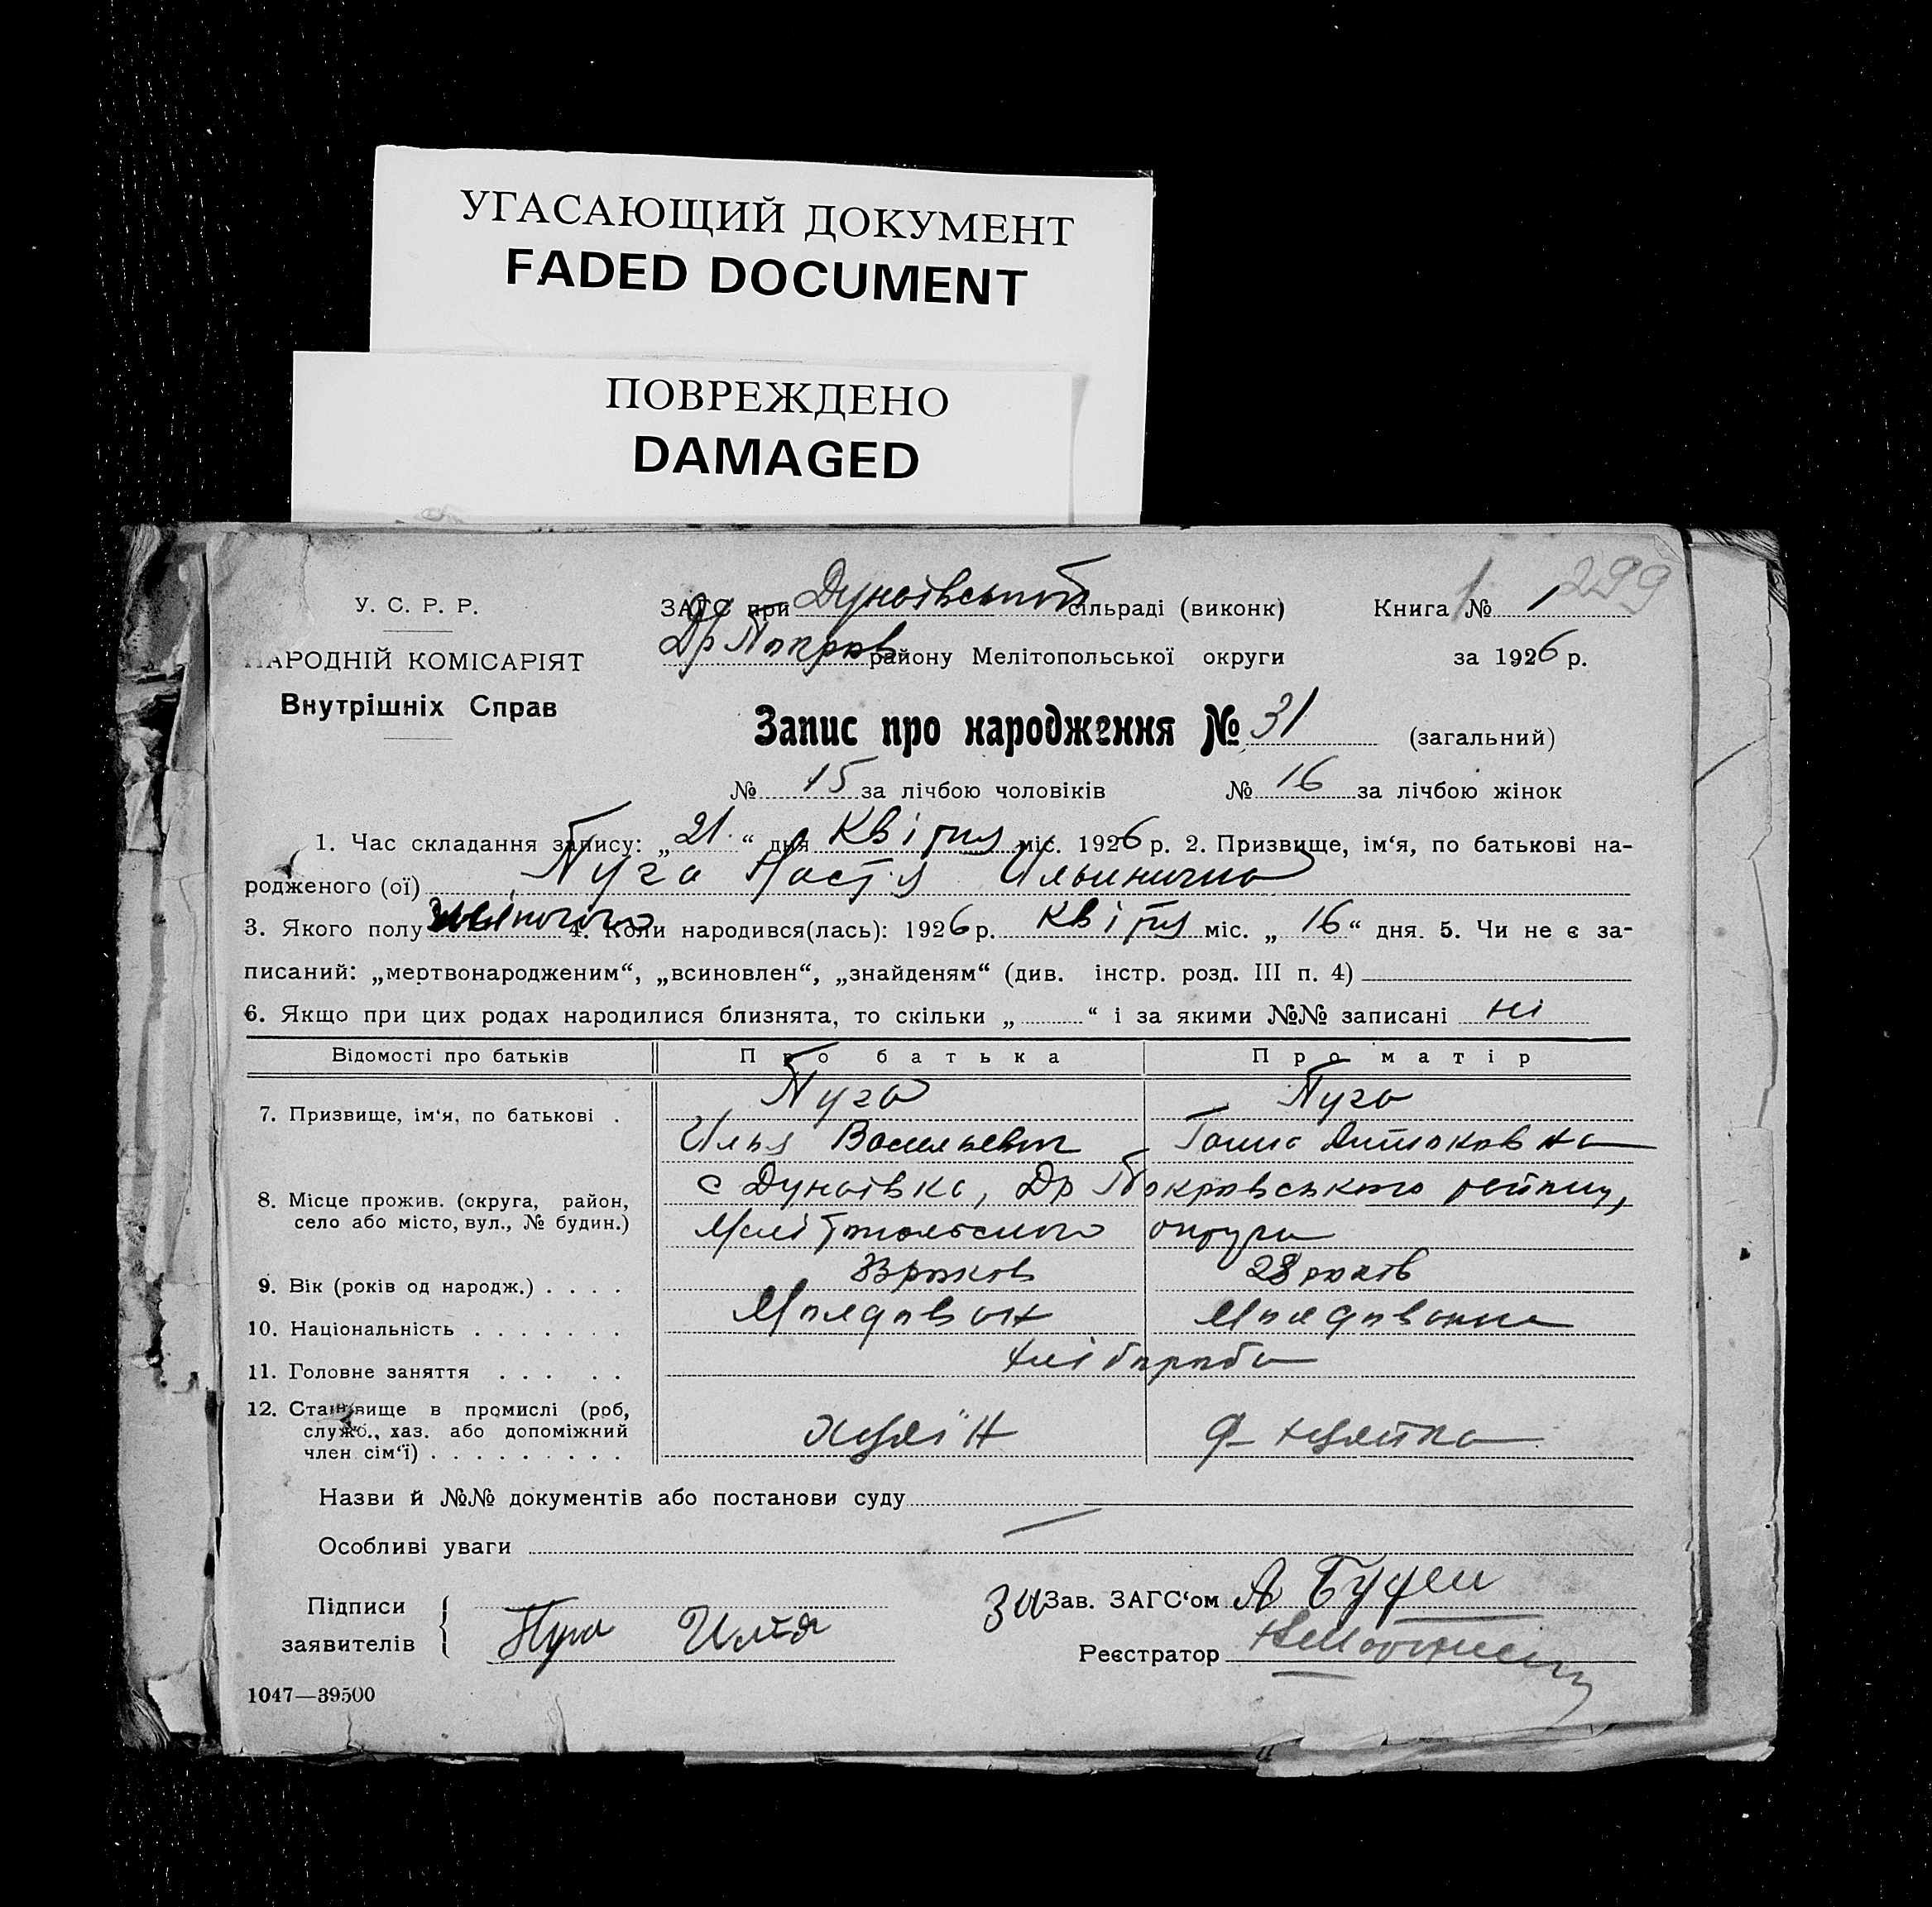 УГАСАЮЩИЙ ДОКУМЕНТ
FADED DOCUMENT
ПОВРЕЖДЕНО
DAMAGED
299
У. С. Р. Р.
НАРОДНІЙ КОМІСАРІЯТ
Внутрішніх Справ
ЗАГС при Дунаївській сільраді (виконк) Книга № 1
Др Покров району Мелітопольської округи за 1926 р.
Запис про народження № 31 (загальний)
№ 15 за лічбою чоловіків № 16 за лічбою жінок
1. Час складання запису: „21“ дня Квітня міс. 1926 р. 2. Призвище, ім‘я, по батькові на-
родженого (ої) Пуга Настя Ильинична
3. Якого полу жіночого 4. Коли народився(лась): 1926 р. Квітня міс. „16“ дня. 5. Чи не є за-
писаний: „мертвонародженим“, „всиновлен“, „знайденям“ (див. інстр. розд. III п. 4)
6. Якщо при цих родах народилися близнята, то скільки „ “ і за якими №№ записані ні
Відомості про батьків Про батька Про матір
7. Призвище, ім‘я, по батькові . Пуга Пуга
Илья Васильевич Ганна
8. Місце прожив. (округа, район, с Дунаівка, Др Покровського району,
село або місто, вул., № будин.) Мелітопольского округи
9. Вік (років од народж.) . . . . 33 роков 28 років
10. Національність . . . . . . . Молдован Молдованка
11. Головне заняття . . . . . хлібороба
12. Становище в промислі (роб,
служб., хаз. або допоміжний
член сім‘ї) . . . . . . . . .
Назви й №№ документів або постанови суду
Особливі уваги
Підписи
заявителів Пуга Илья
За Зав. ЗАГС‘ом А
Реєстратор
1047—39500